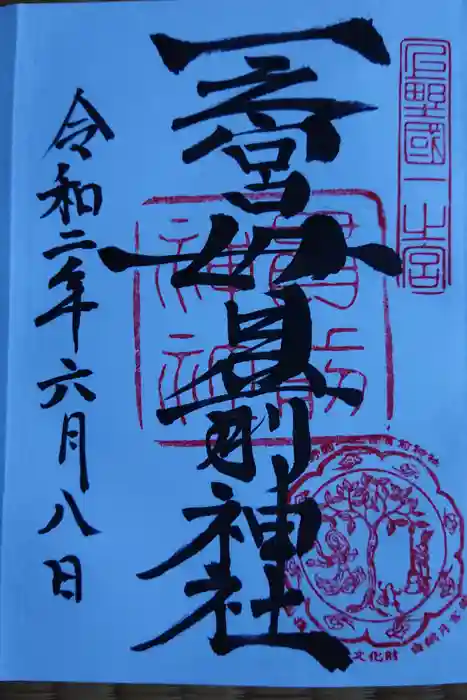 上野國一之宮
一之宮貫前神社
貫前神社
文化財
令和二年六月八日